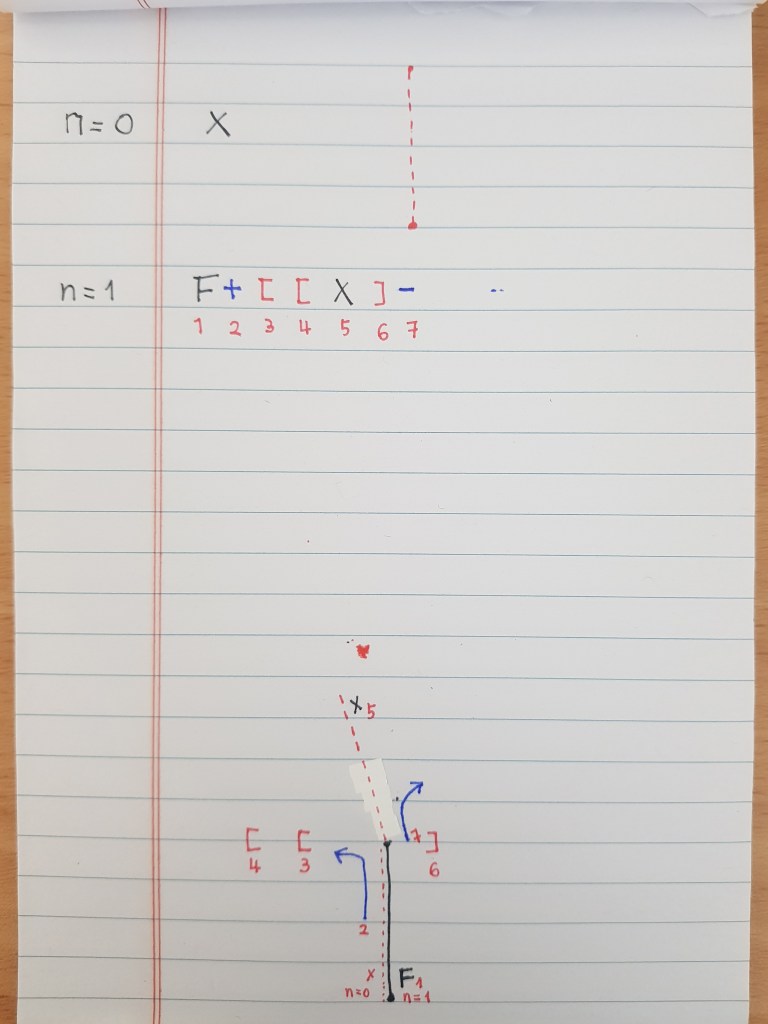 n=0 X
n=1 F+[[X]-
1 2 3 4 5 6 7
X5
[ [ 7 ]
4 3 6
2
X F1
n=0 n=1